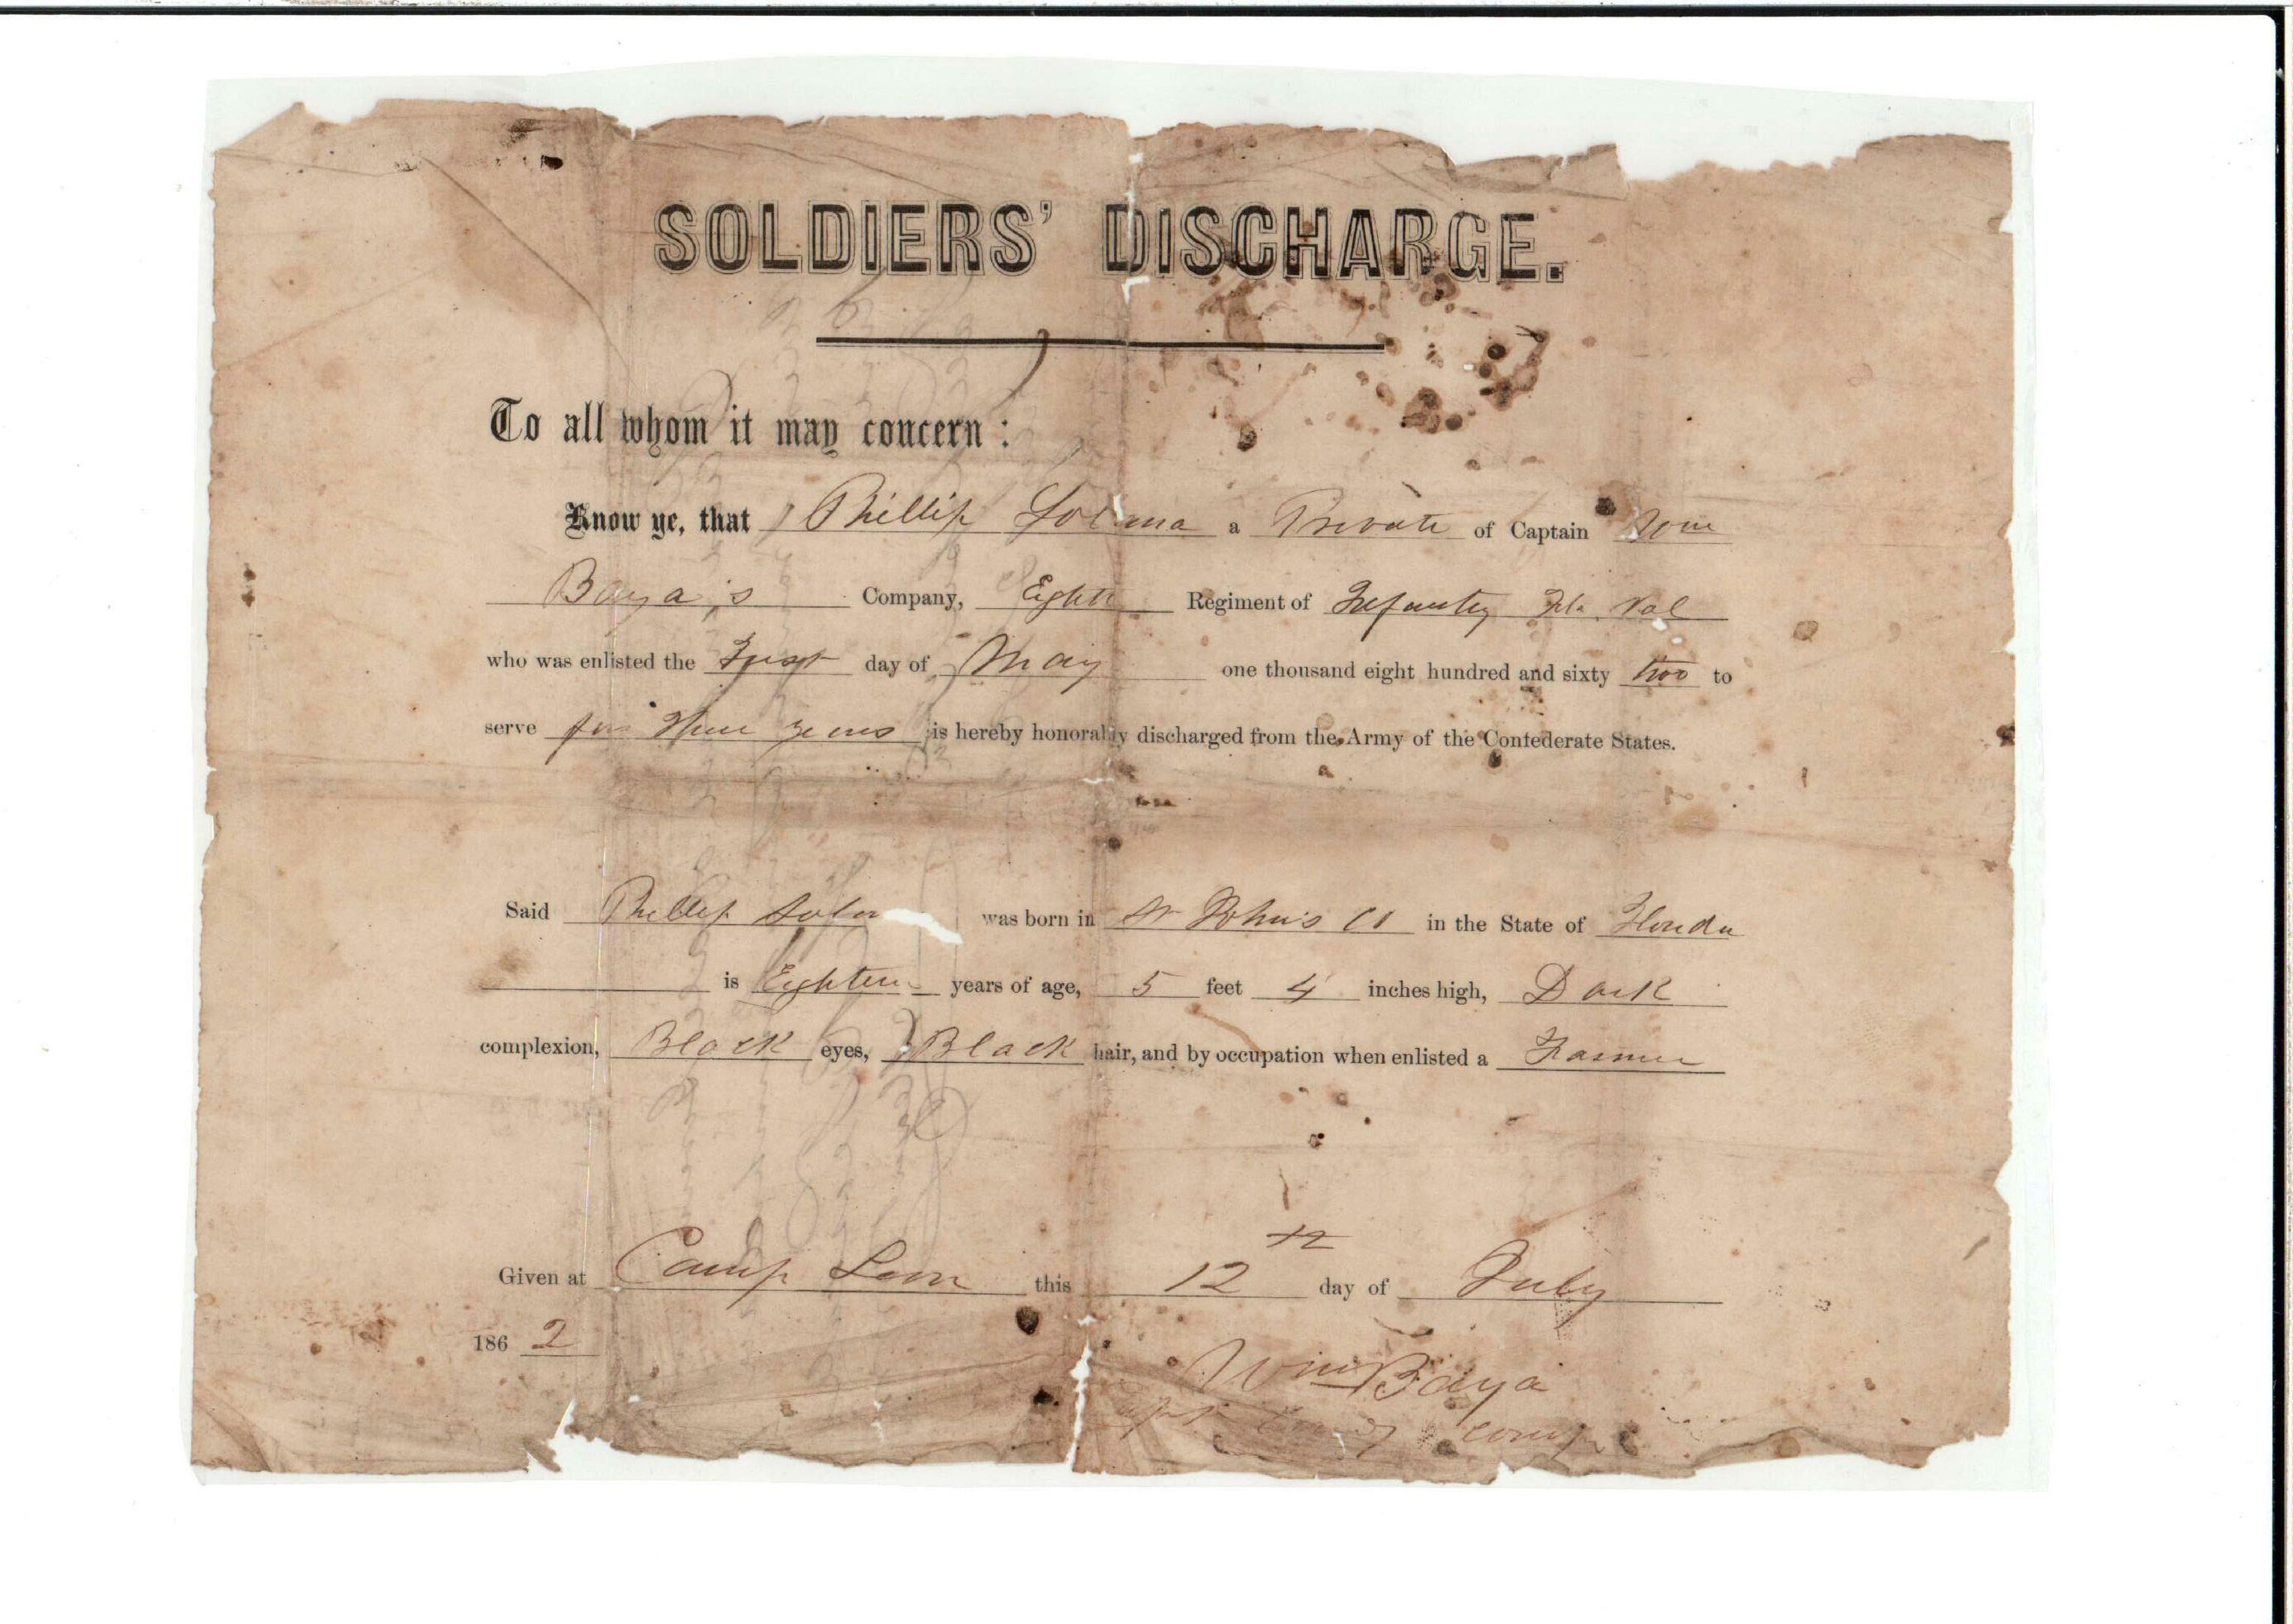 SOLDIERS' DISCHARGE.
To all whom it may concern:
Know ye, that Phillip a Private of Captain Wm
Baya's Company, Eighth Regiment of Infantry Fla. Vol
who was enlisted the First day of May one thousand eight hundred and sixty two to
serve for three years is hereby honorably discharged from the Army of the Confederate States.
Said Phillip was born in St John's Co in the State of Florida
is Eighteen years of age, 5 feet 4 inches high, Dark
complexion, Black eyes, Black hair, and by occupation when enlisted a Farmer
Given at Camp Leon this 12th day of July
1862
Wm Baya
Comp